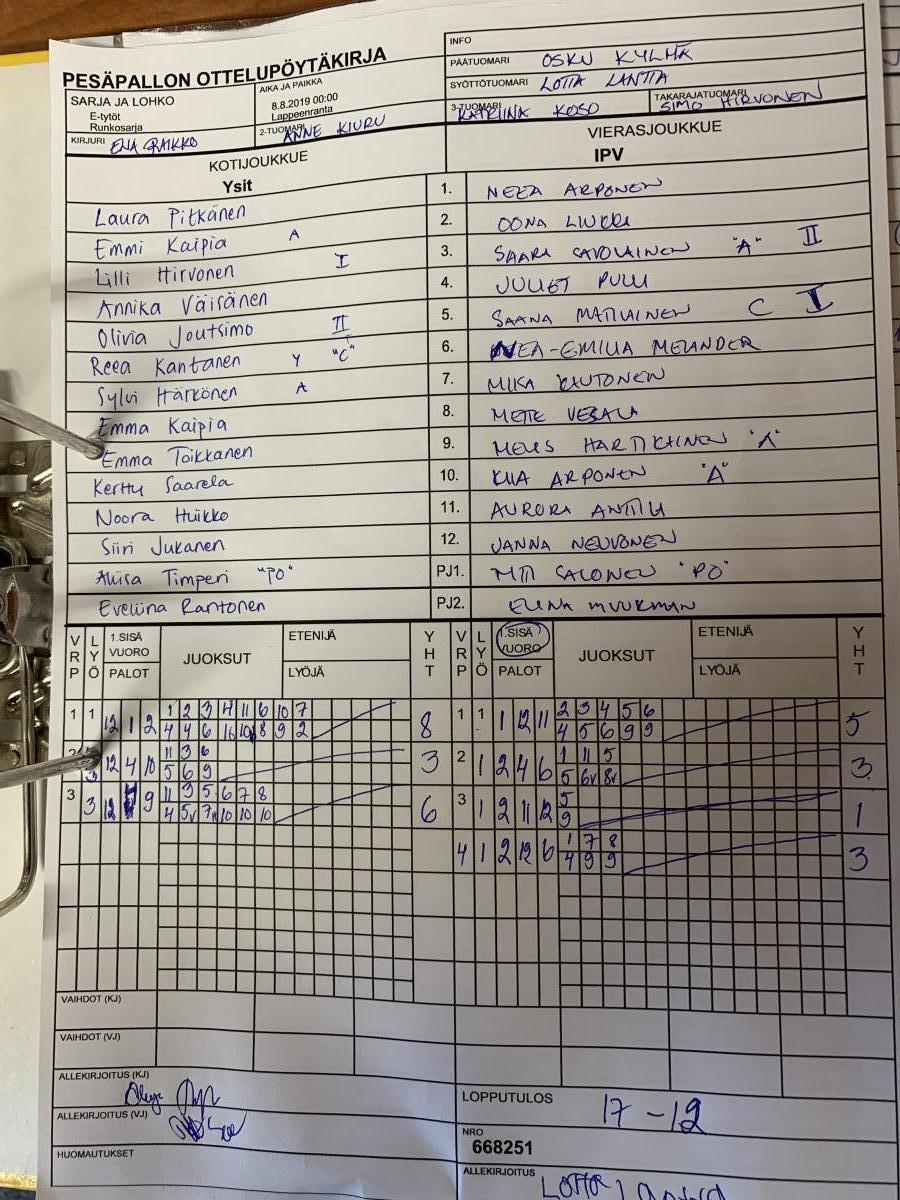 PESÄPALLON OTTELUPÖYTÄKIRJA
INFO
PÄÄTUOMARI OSKU KYLMÄ
SYÖTTÖTUOMARI LOTTA LANTTA
3-TUOMARI KATRIINA KOSO TAKARAJATUOMARI SIMO HIRVONEN
SARJA JA LOHKO
E-tytöt
Runkosarja
AIKA JA PAIKKA
8.8.2019 00:00
Lappeenranta
KIRJURI 2-TUOMARI ANNE KIURU
KOTIJOUKKUE VIERASJOUKKUE
Ysit IPV
Laura Pitkänen 1. NEEA ARPONEN
Emmi Kaipia A 2. OONA
Lilli Hirvonen I 3. SAARA SAVOLAINEN "A" II
Annika Väisänen 4. JULIET PULLI
Olivia Joutsimo II 5. SAANA MATILAINEN C I
Reea Kantanen Y "C" 6. NEA-EMILIA MELANDER
Sylvi Härkönen A 7. MIKA KAUTONEN
Emma Kaipia 8. METTE VESALA
Emma Toikkanen 9. HARTIKAINEN "A"
Kerttu Saarela 10. KIIA ARPONEN "A"
Noora Huikko 11. AURORA ANTTILA
Siiri Jukanen 12. JANNA NEUVONEN
Timperi "PO" PJ1. SALONEN "PO"
Eveliina Rantonen PJ2. ELINA MUUKMAN
VRP LYÖ 1.SISÄ VUORO PALOT JUOKSUT ETENIJÄ LYÖJÄ YHT VRP LYÖ 1.SISÄ VUORO PALOT JUOKSUT ETENIJÄ LYÖJÄ YHT
1 1 12 1 2 1 2 3 4 11 6 10 7 8 1 1 1 12 11 2 3 4 5 6 5
4 4 6 8 9 2 4 5 6 9 9
2 3 12 4 10 11 3 6 3 2 1 2 4 6 1 11 5 3
5 6 9 5 6v 8v
3 3 12 9 11 3 5 6 7 8 6 3 1 2 11 12 5 1
4 5v 10 10 10 9
4 1 2 12 6 1 7 8 3
4 9 9
VAIHDOT (KJ)
VAIHDOT (VJ)
ALLEKIRJOITUS (KJ)
ALLEKIRJOITUS (VJ)
HUOMAUTUKSET
LOPPUTULOS 17-12
NRO
668251
ALLEKIRJOITUS LOTTA